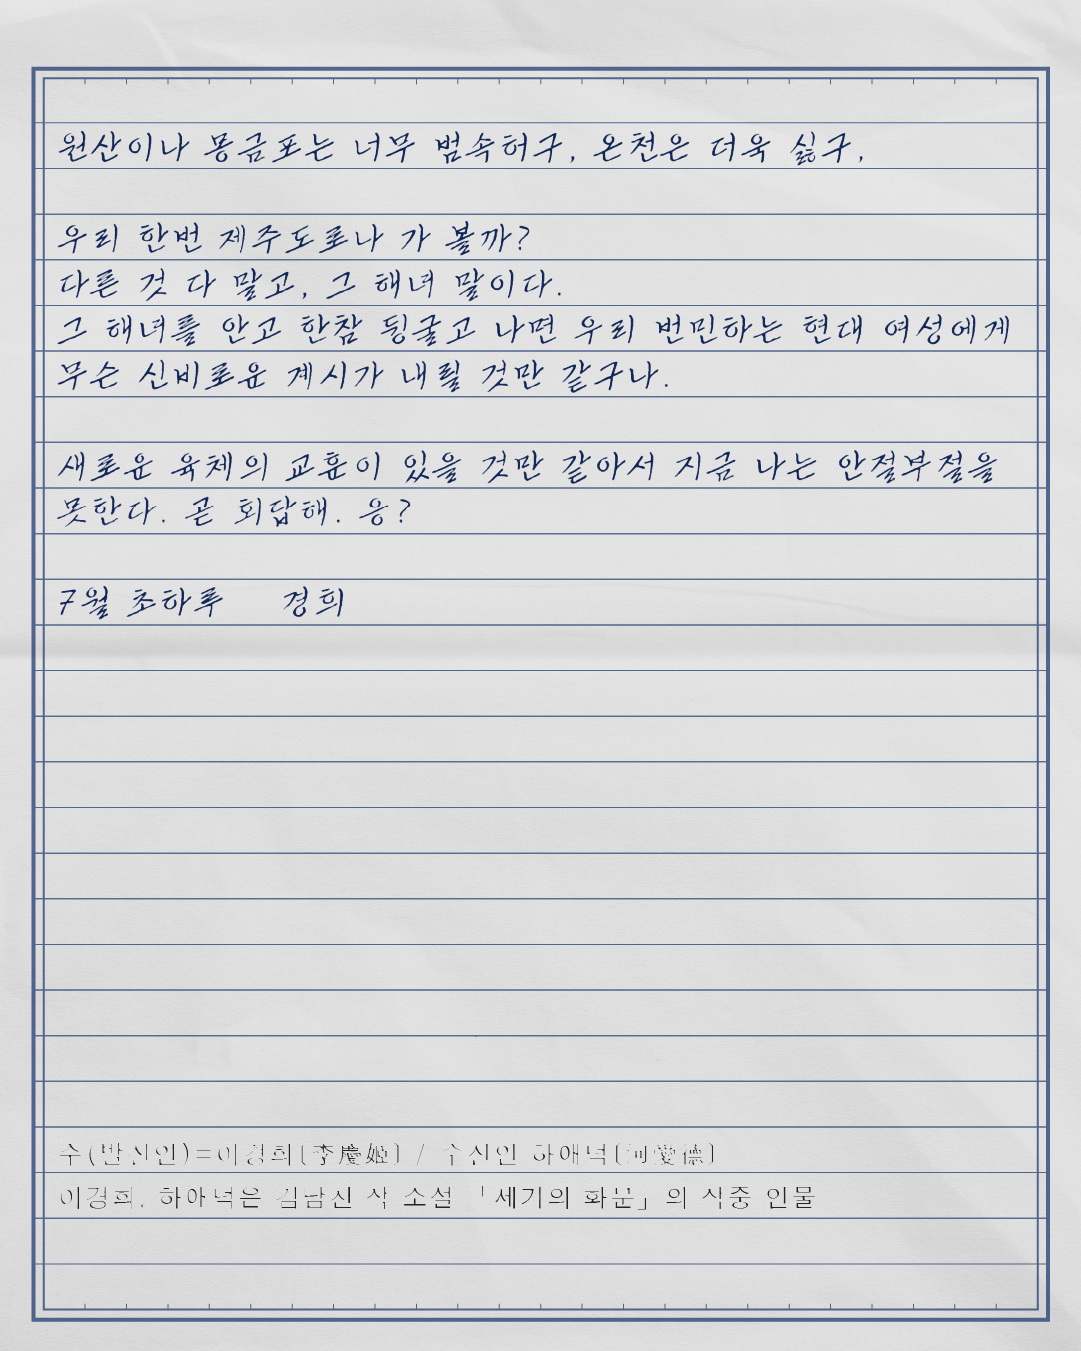 원산이나 몽금포는 너무 범속허구, 온천은 더욱 싫구,
우리 한번 제주도로나 가 볼까?
다른 것 다 말고, 그 해녀 말이다.
그 해녀를 안고 한참 딍굴고 나면 우리 번민하는 현대 여성에게
무슨 신비로운 계시가 내릴 것만 같구나.
새로운 육체의 교훈이 있을 것만 같아서 지금 나는 안절부절을
못한다. 곧 회답해. 응?
7월 초하루 경희
이경희(李慶姬) / 수신인 하애덕(河愛德)
이경희, 소설 「세기의 화문」의 작중 인물